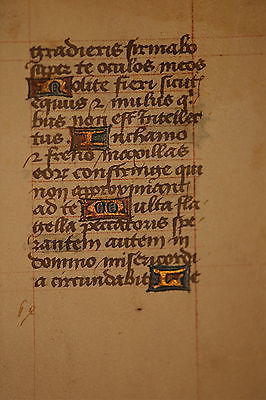 gradieris firmabo
super te oculos meos
Nolite fieri sicut
equus & mulus q
bus non est intellec
tus. In chamo
& freno maxillas
eoꝝ constringe qui
non approximant
ad te Multa fla
gella peccatoris spe
rantem autem in
domino misericordi
a circundabit Le